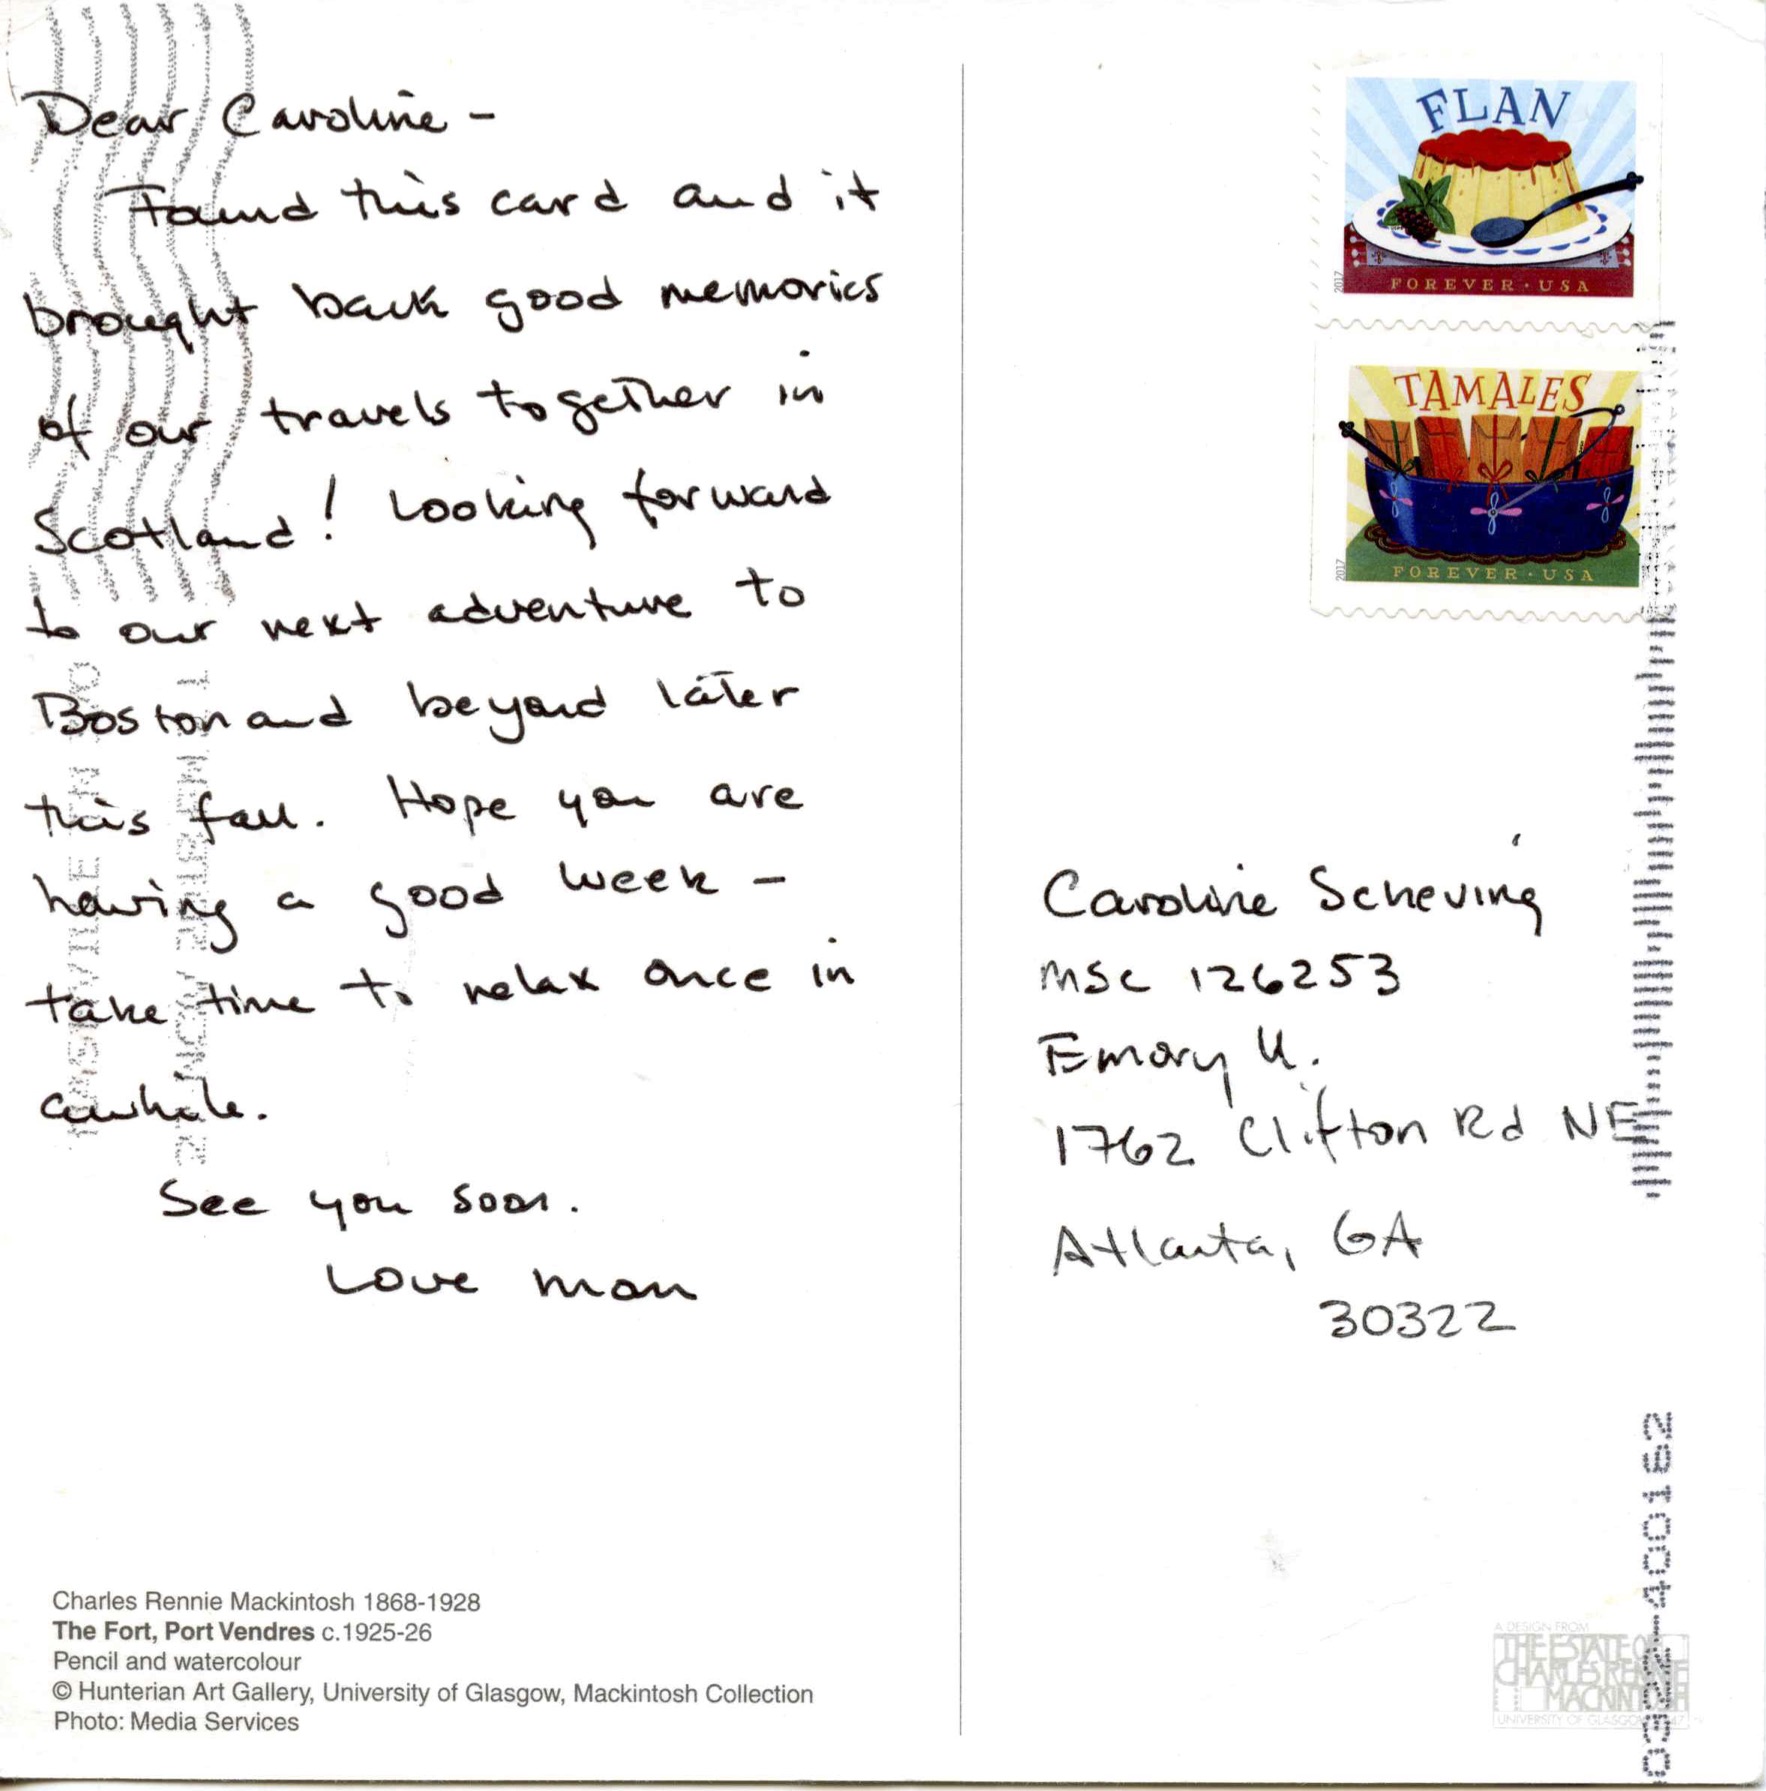 Dear Caroline -
Found this card and it
brought back good memories
of our travels together in
Scotland! Looking forward
to our next adventure to
Boston and beyond later
this fall. Hope you are
having a good week -
take time to relax once in
awhile.
See you soon.
Love mom
Charles Rennie Mackintosh 1868-1928
The Fort, Port Vendres c.1925-26
Pencil and watercolour
© Hunterian Art Gallery, University of Glasgow, Mackintosh Collection
Photo: Media Services
FLAN
2017
FOREVER · USA
TAMALES
2017
FOREVER · USA
Caroline Scheving
MSC 126253
Emory U.
1762 Clifton Rd NE
Atlanta, GA
30322
A DESIGN FROM
THE ESTATE OF
CHARLES RENNIE
MACKINTOSH
UNIVERSITY OF GLASGOW